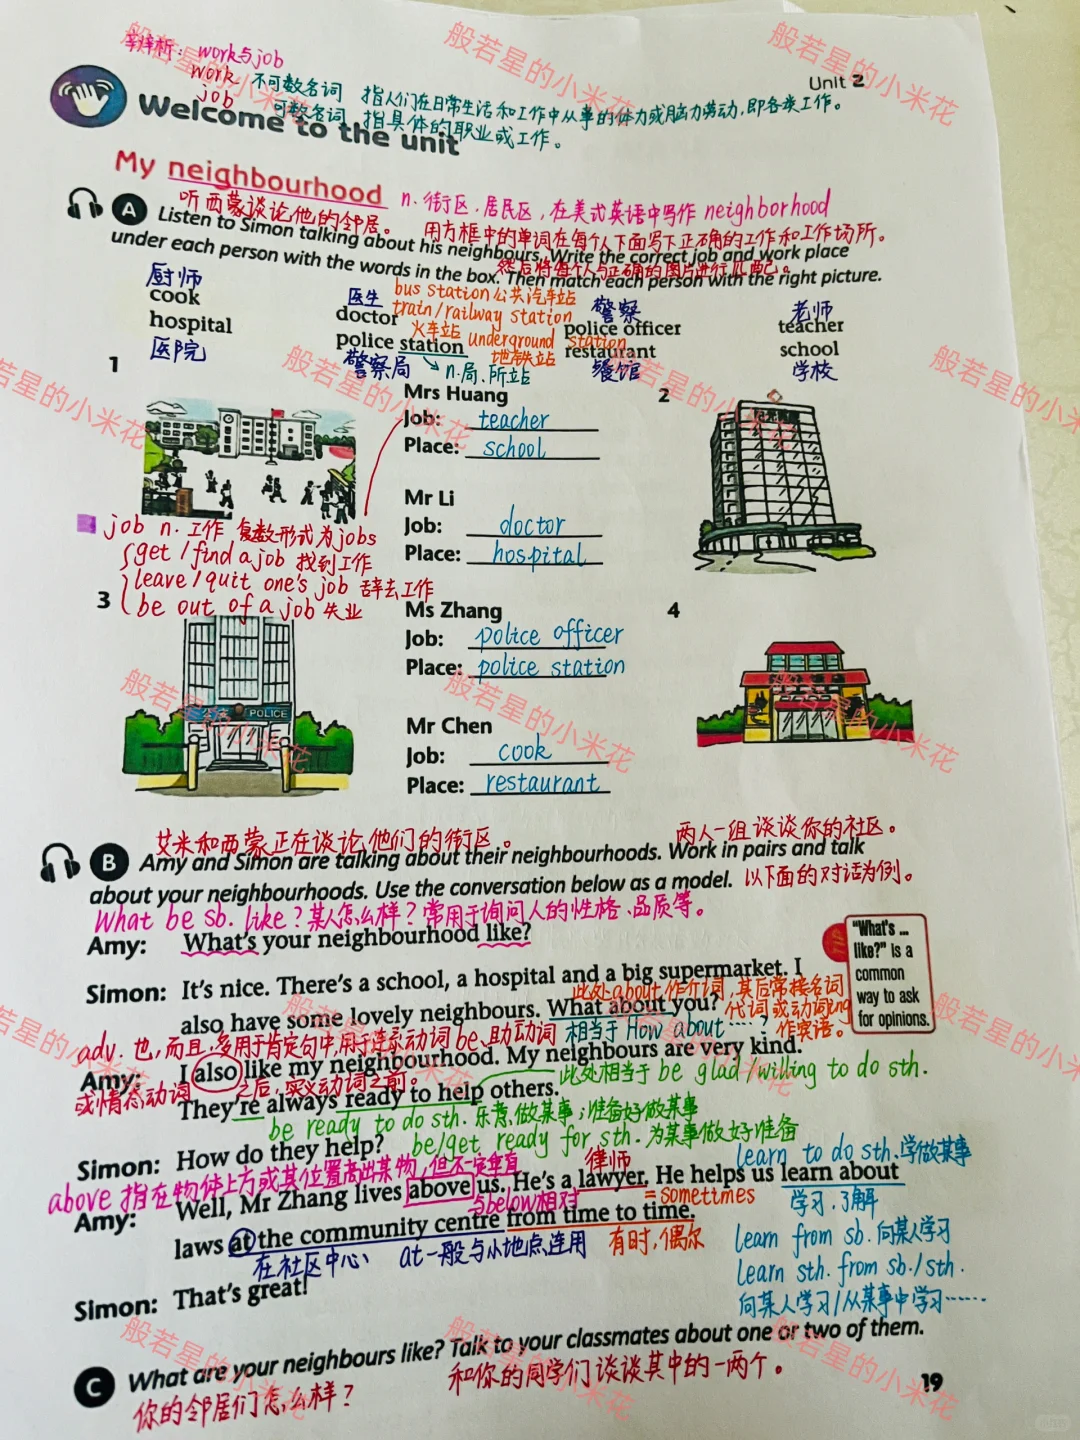 辛辨析：work与job
work 不可数名词 指人们在日常生活和工作中从事的体力或脑力劳动，即各类工作。
job 可数名词 指具体的职业或工作。
Unit 2
Welcome to the unit
My neighbourhood
n. 街区，居民区，在美式英语中写作 neighborhood
听西蒙谈论他的邻居。 用方框中的单词在每个人下面写下正确的工作和工作场所。
A Listen to Simon talking about his neighbours. Write the correct job and work place
然后将每个人与正确的图片进行匹配。
under each person with the words in the box. Then match each person with the right picture.
厨师 医生 bus station公共汽车站 警察 老师
cook doctor train/railway station police officer teacher
火车站 underground station
hospital police station 地铁站 restaurant school
医院 警察局 n.局、所、站 餐馆 学校
1
Mrs Huang
Job: teacher
Place: school
2
Mr Li
Job: doctor
Place: hospital
job n. 工作 复数形式为jobs
get / find a job 找到工作
leave / quit one's job 辞去工作
be out of a job 失业
3
Ms Zhang
Job: police officer
Place: police station
4
POLICE
Mr Chen
Job: cook
Place: restaurant
艾米和西蒙正在谈论他们的街区。 两人一组谈谈你的社区。
B Amy and Simon are talking about their neighbourhoods. Work in pairs and talk
about your neighbourhoods. Use the conversation below as a model. 以下面的对话为例。
What be sb. like? 某人怎么样？常用于询问人的性格、品质等。
Amy: What's your neighbourhood like?
"What's ...
like?" is a
common
way to ask
for opinions.
Simon: It's nice. There's a school, a hospital and a big supermarket. I
此处about作介词，其后常接名词
also have some lovely neighbours. What about you? 代词或动词ing
adv. 也，而且；多用于肯定句中，用于连系动词be、助动词 相当于 How about ……? 作宾语。
Amy: I also like my neighbourhood. My neighbours are very kind.
或情态动词 之后，实义动词之前。 此处相当于 be glad/willing to do sth.
They're always ready to help others.
be ready to do sth. 乐意做某事；准备好做某事
Simon: How do they help? be/get ready for sth. 为某事做好准备
learn to do sth. 学做某事
above 指在物体上方或其位置高出某物，但不一定垂直 律师
Amy: Well, Mr Zhang lives above us. He's a lawyer. He helps us learn about
与below相对 = sometimes 学习，了解
laws at the community centre from time to time.
在社区中心 at一般与小地点连用 有时，偶尔 learn from sb. 向某人学习
learn sth. from sb./sth.
Simon: That's great! 向某人学习/从某事中学习……
C What are your neighbours like? Talk to your classmates about one or two of them.
你的邻居们怎么样？ 和你的同学们谈谈其中的一两个。
19
般若星的小米花